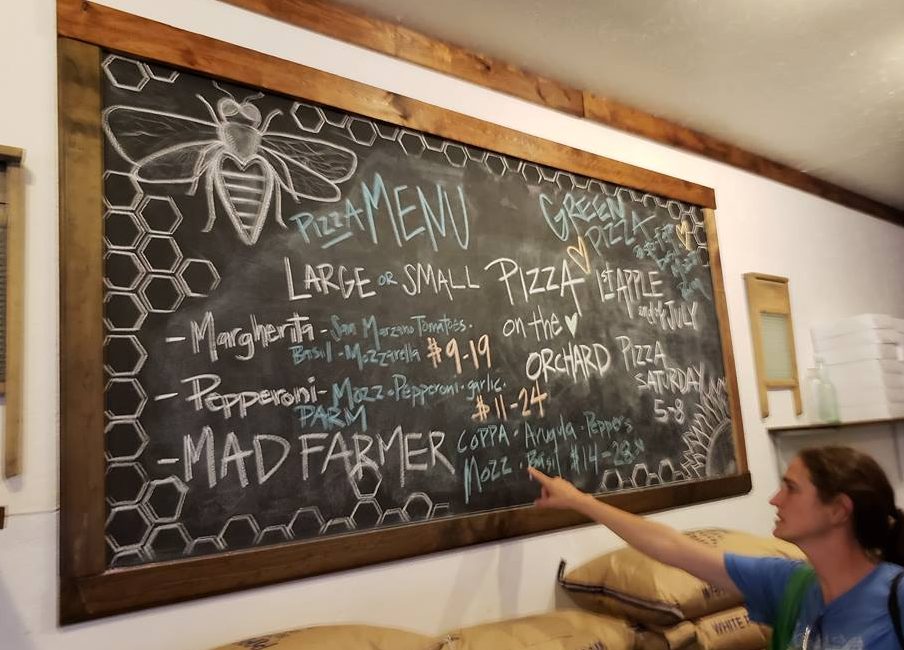 Pizza MENU
LARGE OR SMALL
- Margherita - San Marzano Tomatoes.
Basil · Mozzarella $9-19
- Pepperoni - Mozz · Pepperoni · garlic.
PARM $11-24
- MAD FARMER COPPA · Arugula · Peppers
Mozz · Basil $14-28
GREEN
PIZZA
PIZZA
on the
ORCHARD
1st APPLE
and 4th JULY
PIZZA
SATURDAY
5-8
WHITE